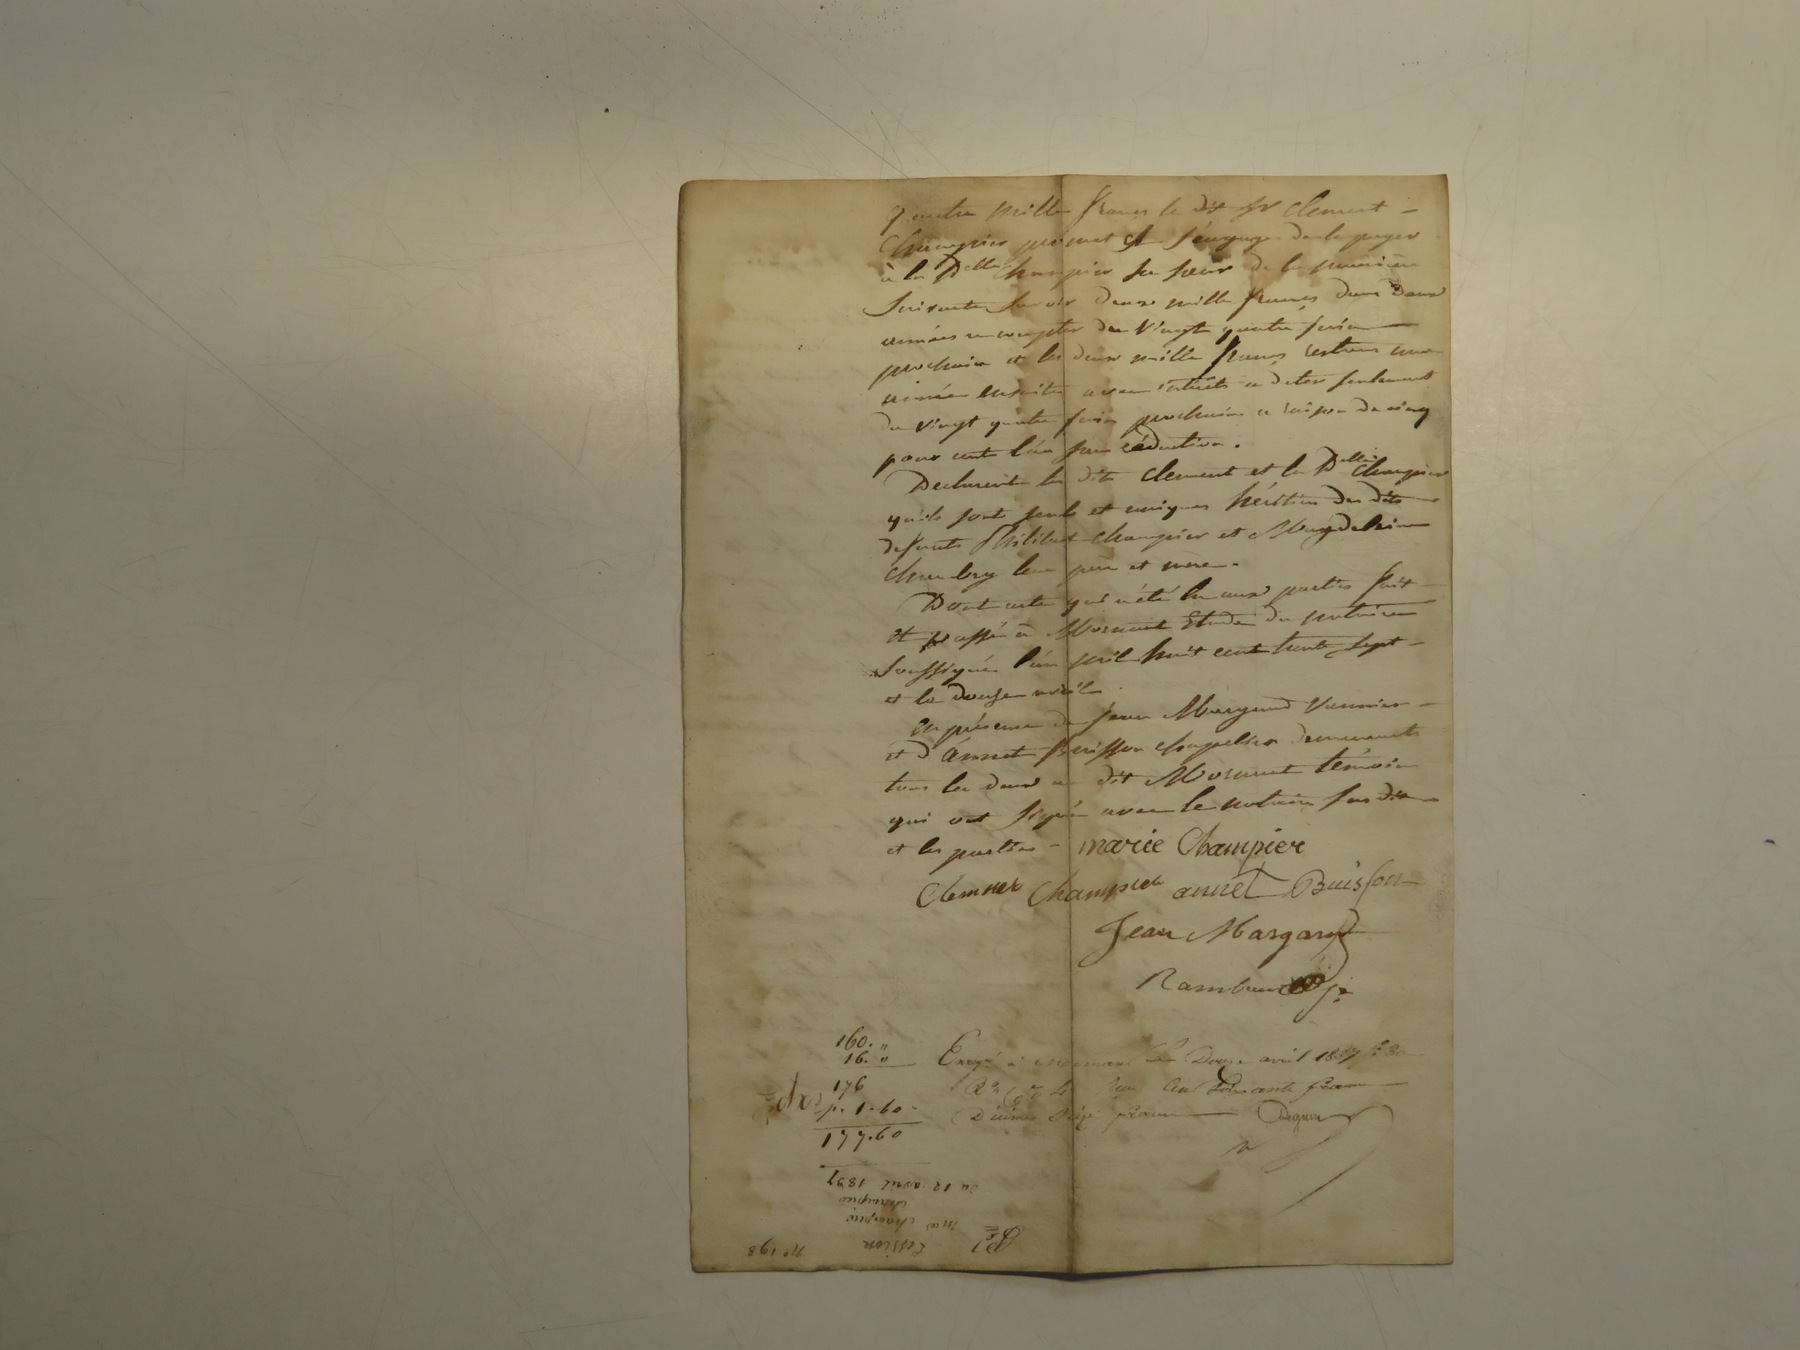 quatre mille francs le dit Sr Clement -
Champier promet et s'engage de les payer
à la Delle Champier sa sœur de la manière
Suivante Savoir deux mille francs dans Deux
années a compter du Vingt quatre juin
prochain et les deux mille francs restans une
année ensuite avec intérêts a dater seulement
du Vingt quatre juin prochain a raison de cinq
pour cent l'an sans réduction.
Declarent les dits Clement et la Delle Champier
qu'ils sont seuls et uniques héritiers des dits
defunts Philibert Champier et Magdelaine
leur père et mère.
Dont acte qui a été lu aux parties fait
et passé à Mornant Etude du notaire
Soussigné l'an mil huit cent trente sept -
et le douze avril.
En présence de Jean Margand -
et d'Annet Buisson chapelier demeurants
tous les deux au dit Mornant témoins
qui ont signé avec le notaire sus dit
et les parties - marie Champier
Clement Champier annet Buisson
Jean Margand
Rambaud
160. "
16. "
176
p. 1-60-
177.60
Engé à Mornant Le Douze avril 1837
cent soixante francs
Décime Seize francs
Du 12 avril 1837
Champier
Champier
Cession
n° 198